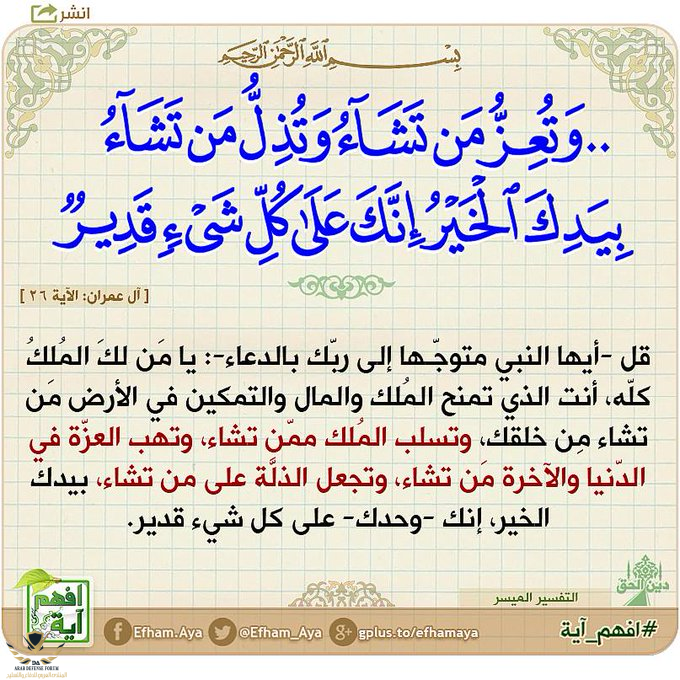 انشر
بِسْمِ اللَّهِ الرَّحْمَٰنِ الرَّحِيمِ
..وَتُعِزُّ مَن تَشَآءُ وَتُذِلُّ مَن تَشَآءُ
بِيَدِكَ ٱلْخَيْرُ إِنَّكَ عَلَىٰ كُلِّ شَىْءٍ قَدِيرٌ
[ آل عمران: الآية ٢٦ ]
قل -أيها النبي متوجّها إلى ربّك بالدعاء-: يا مَن لكَ المُلكُ
كلّه، أنت الذي تمنح المُلك والمال والتمكين في الأرض مَن
تشاء مِن خلقك، وتسلب المُلك ممّن تشاء، وتهب العزّة في
الدّنيا والآخرة مَن تشاء، وتجعل الذلَّة على من تشاء، بيدك
الخير، إنك -وحدك- على كل شيء قدير.
دين الحق
التفسير الميسر
#افهم_آية
gplus.to/efhamaya
@Efham_Aya
Efham.Aya
افهم
آية
DA
ARAB DEFENSE FORUM
المنتدى العربي للدفاع والتسليح